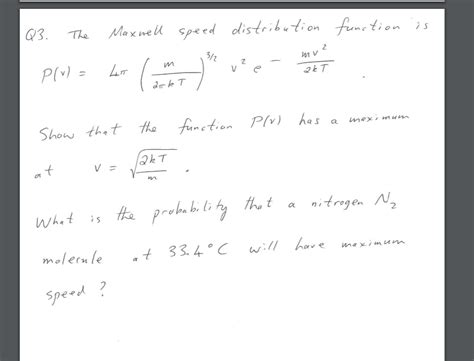 Q3. The Maxwell speed distribution function is
P(v) = 4π (m / 2πkT)^3/2 v^2 e^- mv^2 / 2kT .
Show that the function P(v) has a maximum
at v = √(2kT / m) .
What is the probability that a nitrogen N₂
molecule at 33.4°C will have maximum
speed ?